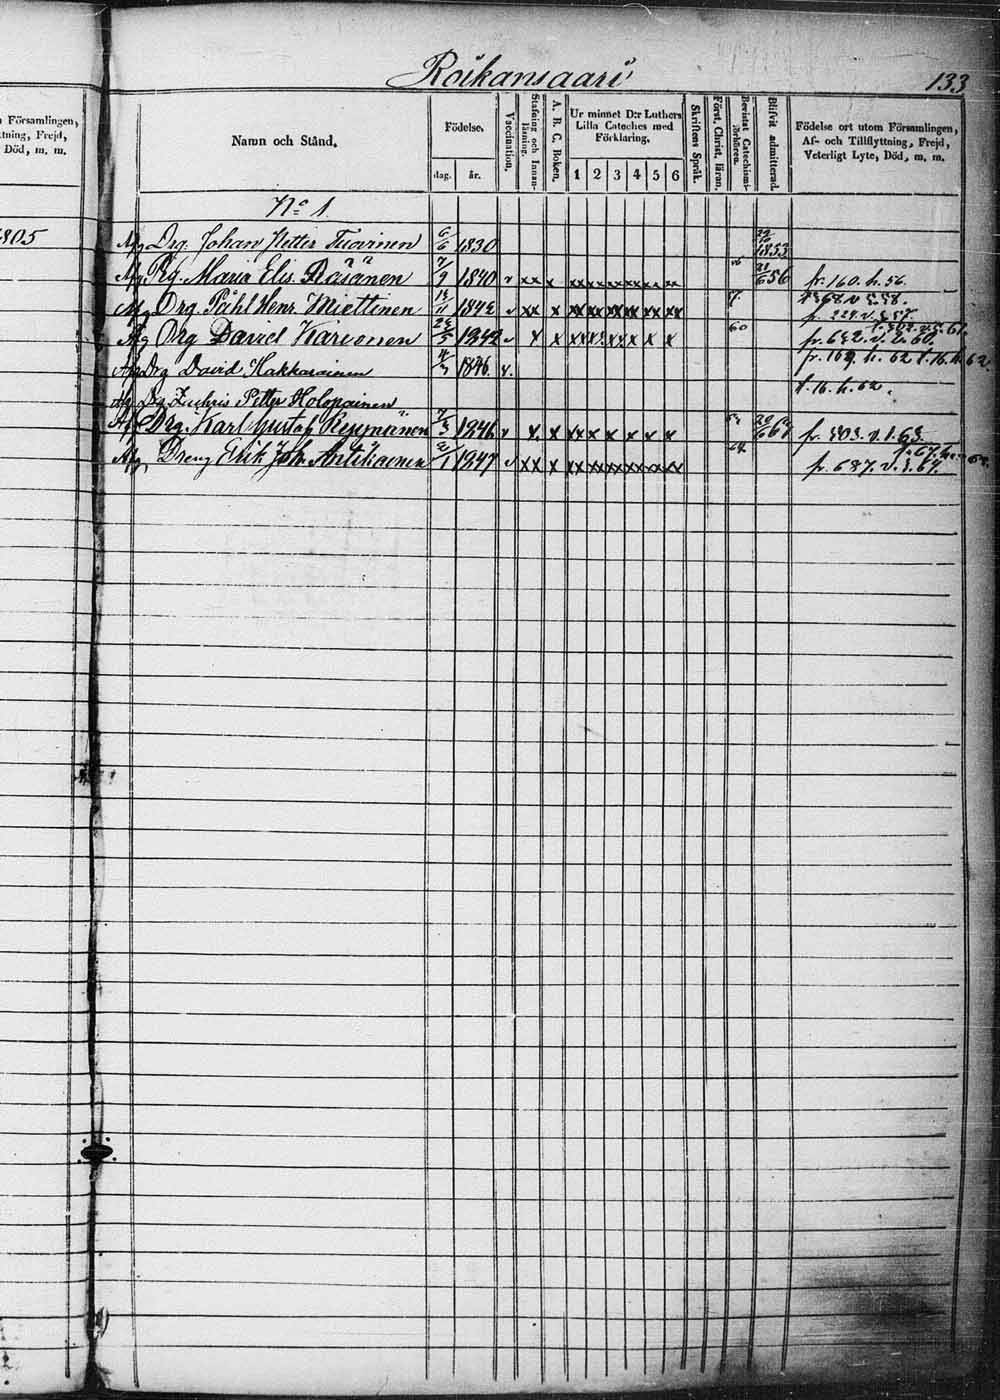 Roikansaari
133
Församlingen,
ttning, Frejd,
Död, m. m.
1805
Namn och Stånd.
Födelse.
dag. år.
Vaccination.
Stafning och Innan-
läsning.
A. B. C. Boken.
Ur minnet D:r Luthers
Lilla Cateches med
Förklaring.
1 2 3 4 5 6
Skriftens Språk.
Först. Christ. läran.
Bevistat Catechismi-
förhören.
Blifvit admitterad.
Födelse ort utom Församlingen,
Af- och Tillflyttning, Frejd,
Veterligt Lyte, Död, m. m.
No 1
Drg. Johan Petter Tuovinen 6/6 1830 1853
Pig. Maria Elis. Räsänen 7/9 1840 v xx x xx xx xx xx xx xx 56 fr. 160. h. 56.
Drg. Påhl Henr. Miettinen 1842 v xx x xx xx xx xx xx xx 57. fr. 224. v. h. 57.
Drg David Karvonen 1842 v x x x x x x x x 60 fr. 642. v. h. 60.
Drg David Hakkarainen 4/7 1846 v. fr. 169 h. 62 t. 16. h. 62.
Drg Zachris Petter Holopainen t. 16. h. 62.
Drg. Karl Gustaf 1846 v x. x xx x x x x x fr. 303. v. 1. 63.
Dreng Erik Joh. Antikainen 2/1 1847 v xx x xx xx xx xx xx xx fr. 687. v. h. 64.